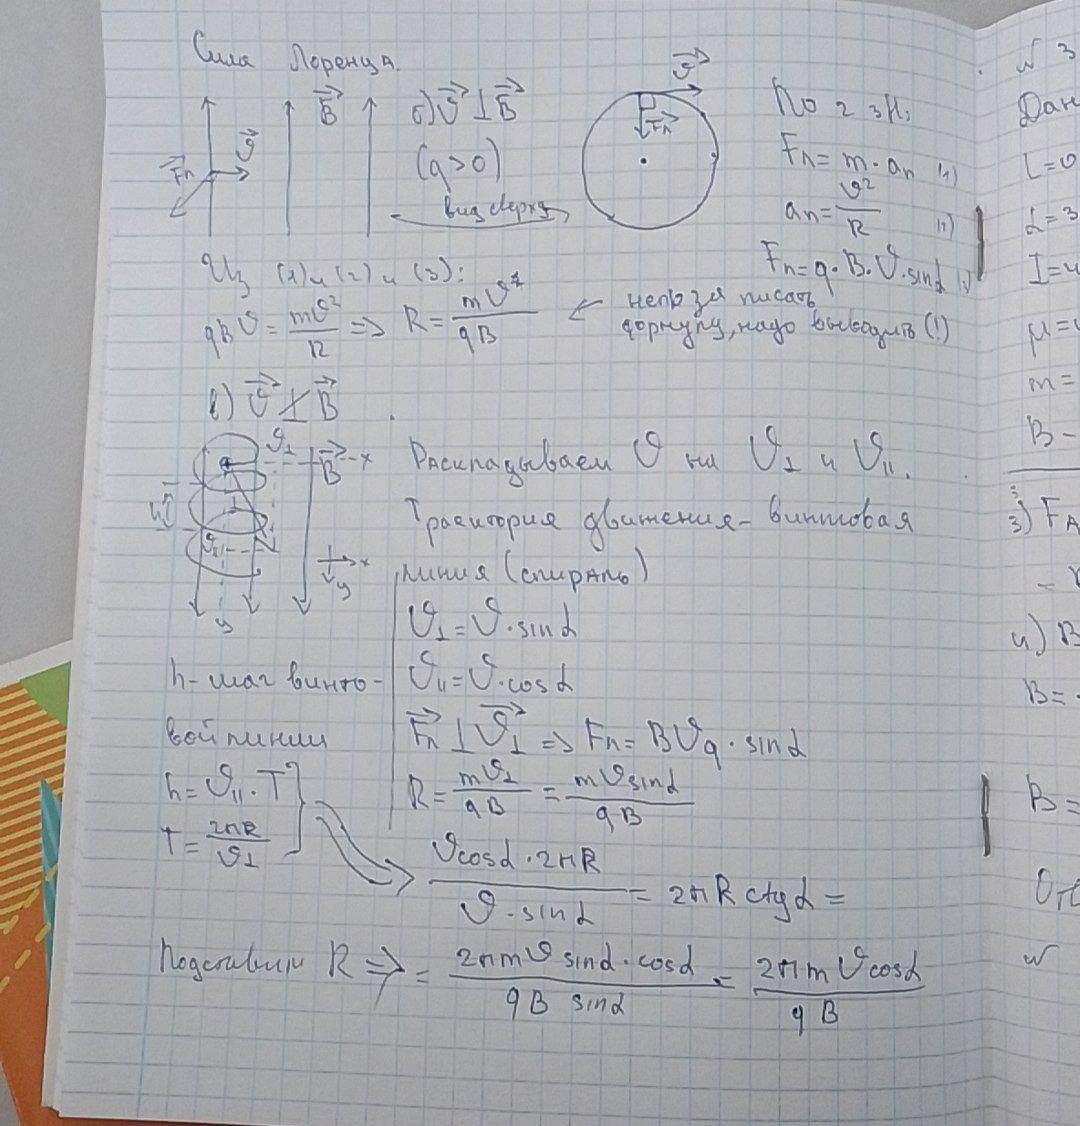 Сила Лоренца.
B⃗
б) ϑ⃗ ⊥ B⃗
(q>0)
вид сверху
ϑ⃗
Fл
ϑ⃗
Fл
По 2 зН:
Fл = m · aп (1)
aп = ϑ²/R
Fл = q · B · ϑ · sinα
Из (1) и (2) и (3):
qBϑ = mϑ²/R => R = mϑ/qB ← нельзя писать
формулу, надо выводить (!)
в) ϑ⃗ ⊥̸ B⃗
ϑ⊥
B⃗
x
x
y
y
Раскладываем ϑ на ϑ⊥ и ϑ||.
Траектория движения - винтовая
линия (спираль)
ϑ⊥ = ϑ · sinα
ϑ|| = ϑ · cosα
F⃗л ⊥ ϑ⃗⊥ => Fл = Bϑq · sinα
R = mϑ⊥/qB = mϑsinα/qB
h - шаг винто-
вой линии
h = ϑ|| · T
T = 2πR/ϑ⊥
ϑcosα · 2πR/ϑ · sinα = 2πR ctgα =
Подставим R => = 2πmϑ sinα · cosα/qB sinα = 2πmϑcosα/qB
N 3
α = 3
μ =
m =
B -
3) FА
4) B
B =
B =